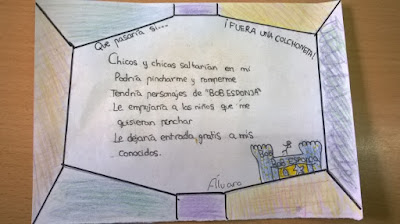 Que pasaría si...
¡FUERA UNA COLCHONETA!
Chicos y chicas saltarían en mi
Podría pincharme y romperme
Tendría personajes de "BOB ESPONJA"
Le empujaría a los niños que me
quisieran pinchar
Le dejaría entrada gratis a mis
conocidos.
BOB
BOB ESPONJA
Álvaro